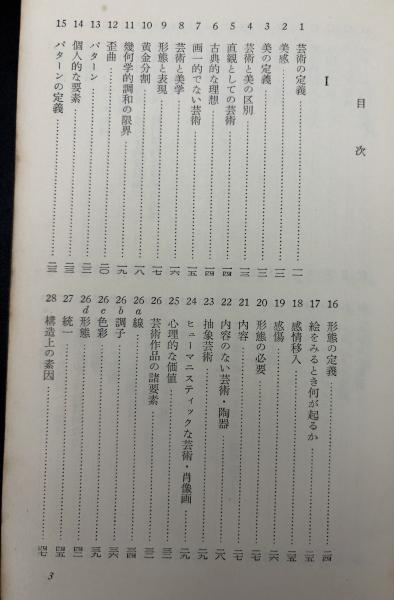 目次
I
1 芸術の定義……一一
2 美感……一二
3 美の定義……一二
4 芸術と美の区別……一三
5 直観としての芸術……一四
6 古典的な理想……一四
7 画一的でない芸術……一五
8 芸術と美学……一六
9 形態と表現……一七
10 黄金分割……一八
11 幾何学的調和の限界……一九
12 歪曲……二〇
13 パターン……二二
14 個人的な要素……二三
15 パターンの定義……二三
16 形態の定義……二四
17 絵をみるとき何が起るか……二五
18 感情移入……二五
19 感傷……二六
20 形態の必要……二七
21 内容……二七
22 内容のない芸術・陶器……二八
23 抽象芸術……二九
24 ヒューマニスティックな芸術・肖像画……二九
25 心理的な価値……三一
26 芸術作品の諸要素……三二
26a 線……三四
26b 調子……三六
26c 色彩……三九
26d 形態……四二
27 統一……四五
28 構造上の素因……四七
3